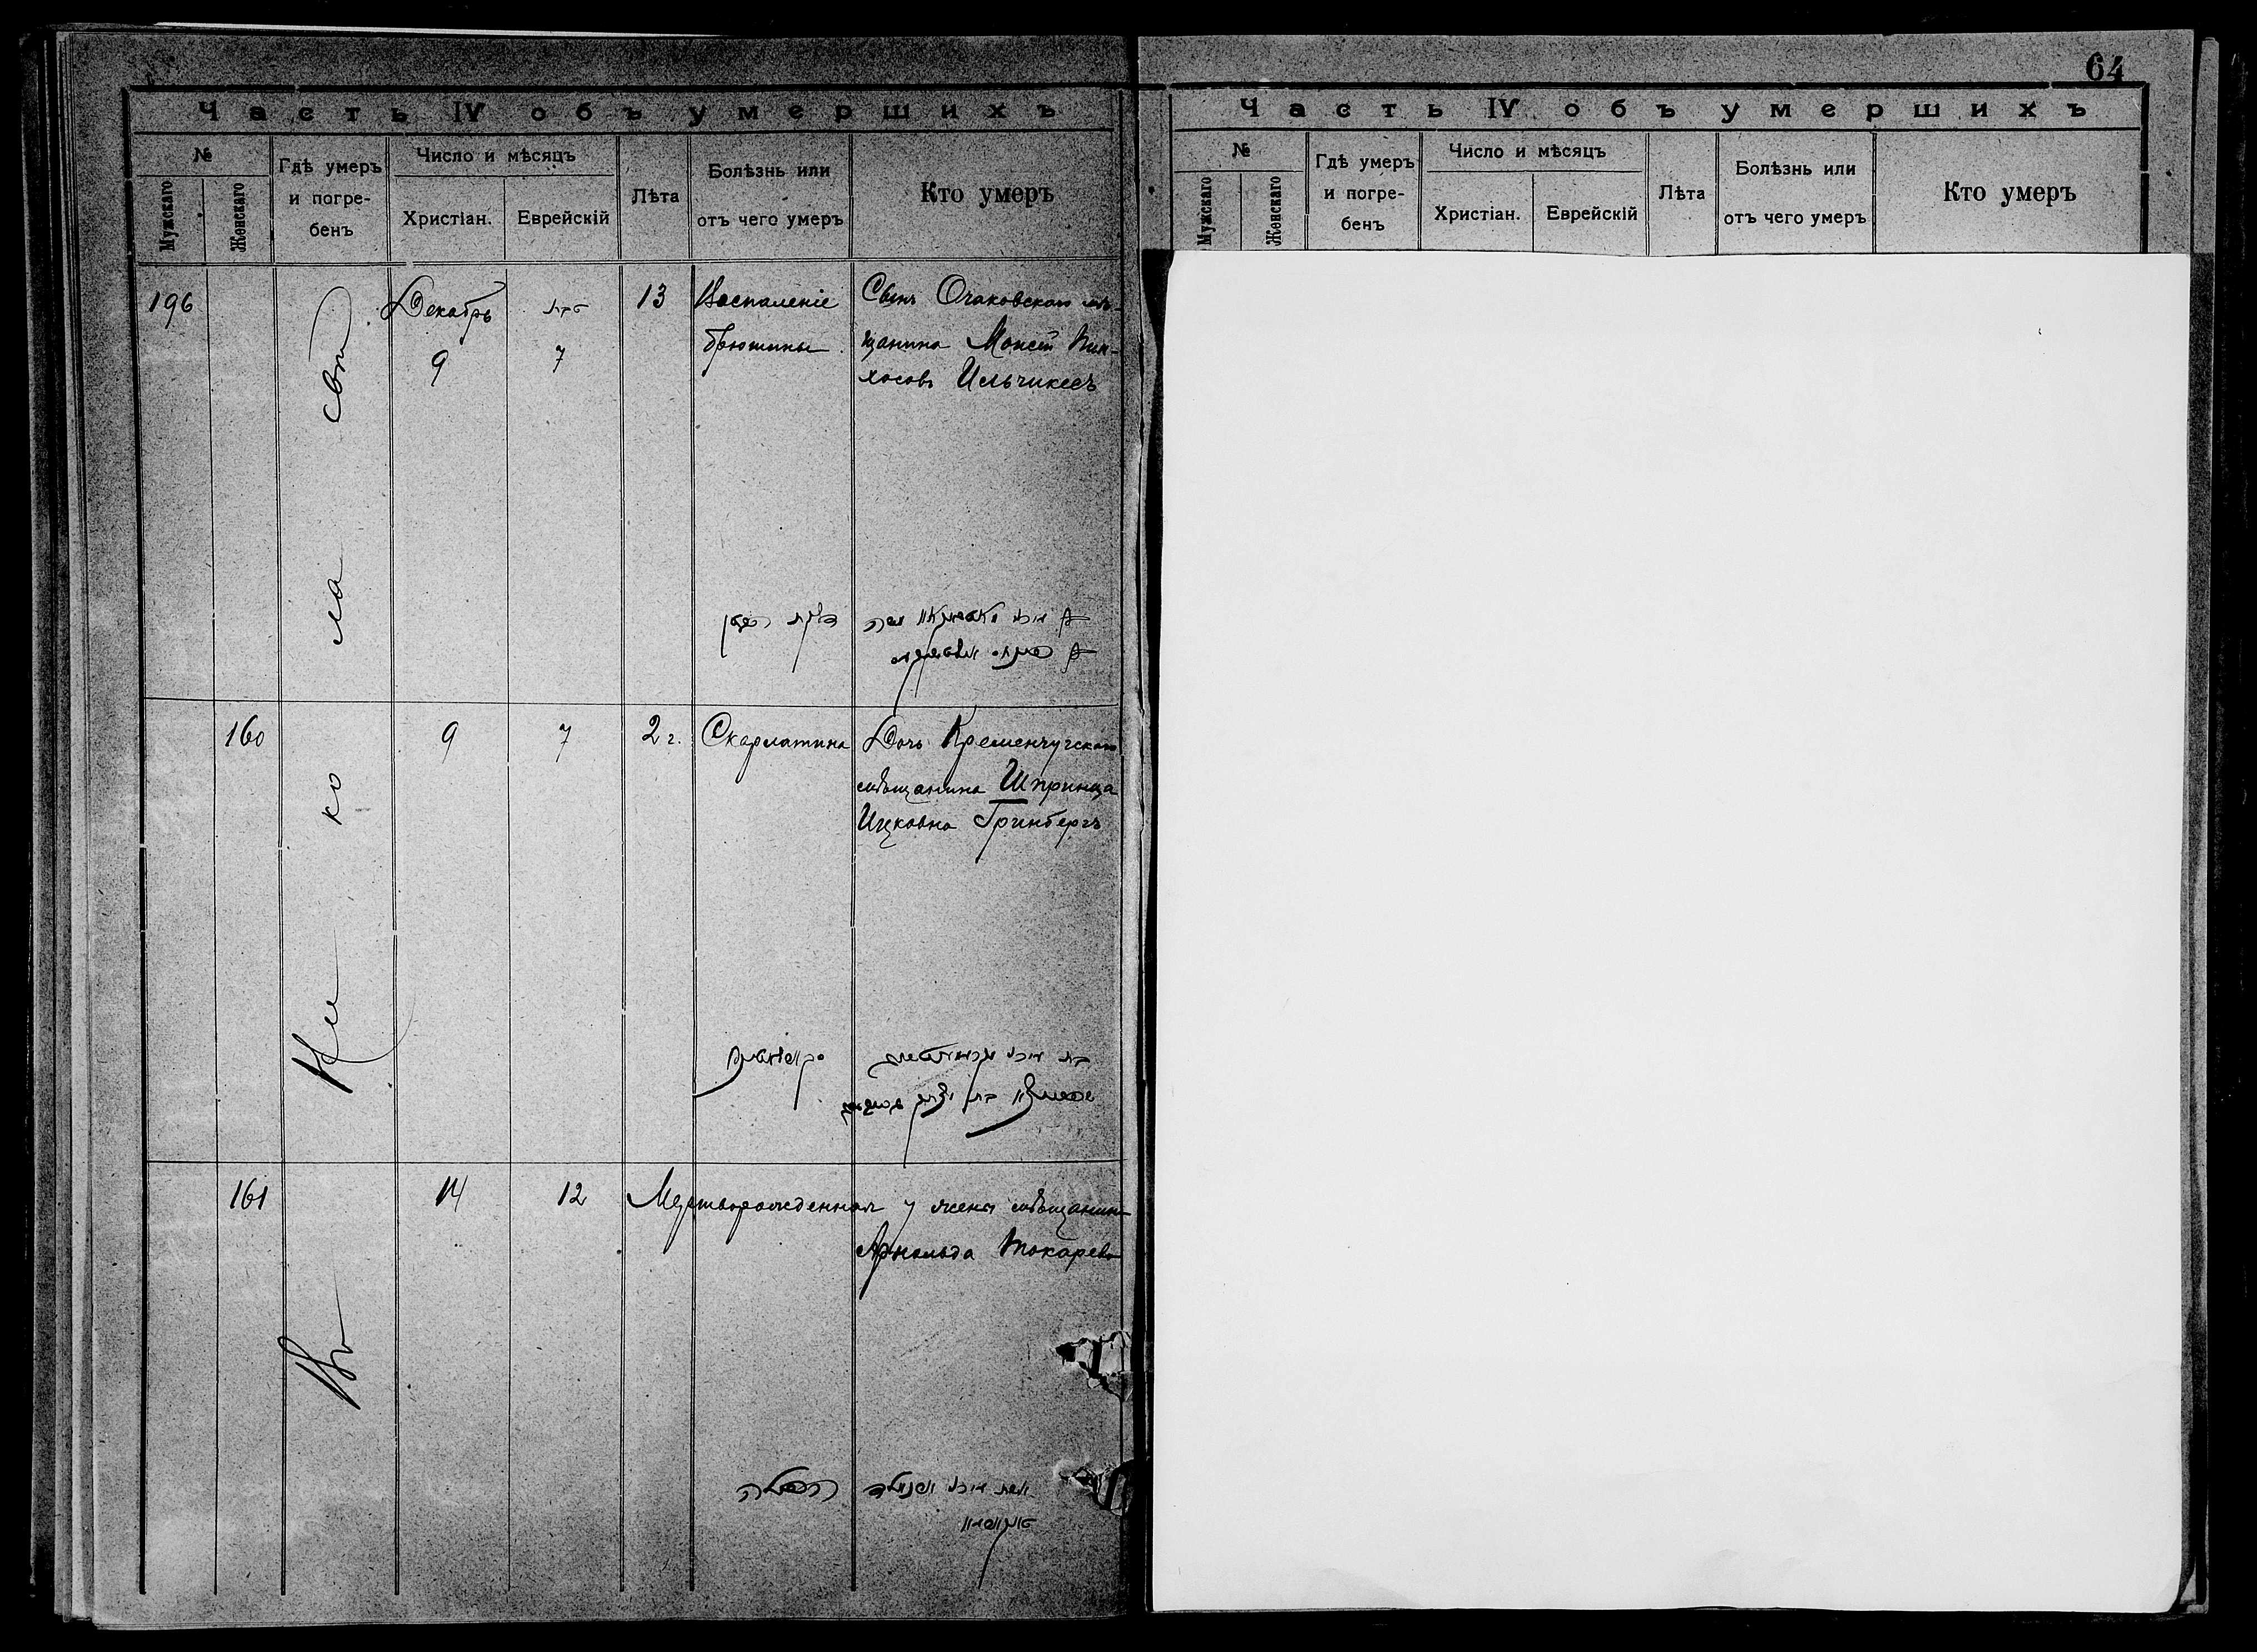 64
Часть IV объ умершихъ
№
Мужскаго
Женскаго
Гдѣ умеръ
и погре-
бенъ
Число и мѣсяцъ
Христіан.
Еврейскій
Лѣта
Болѣзнь или
отъ чего умеръ
Кто умеръ
Въ Николаевѣ
196
Декабрь
9
טבת
7
13
Воспаленіе
брюшины
Сынъ Очаковскаго мѣ-
щанина Моисей Пин-
хосовъ Ильчикесъ
דלקת הבטן
160
9
7
2 г.
Скарлатина
Дочь Кременчугскаго
мѣщанина Шпринца
Ицковна Гринбергъ
סקארלאטינא
161
14
12
Мертворожденная у жены мѣщанина
Арнольда Токарева
הפילה
Часть IV объ умершихъ
№
Мужскаго
Женскаго
Гдѣ умеръ
и погре-
бенъ
Число и мѣсяцъ
Христіан.
Еврейскій
Лѣта
Болѣзнь или
отъ чего умеръ
Кто умеръ